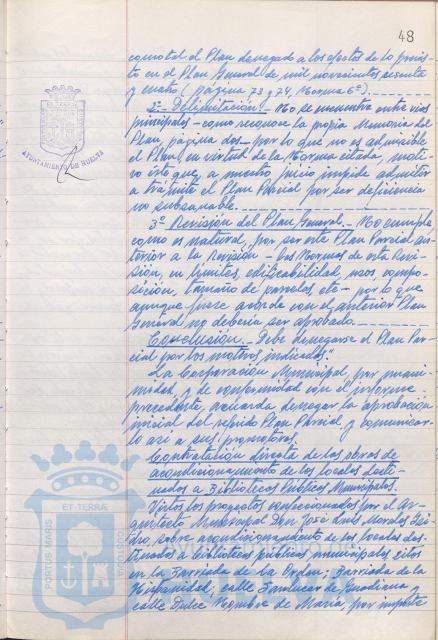 48
como tal el Plan denegado a los efectos de lo previs-
to en el Plan General de mil novecientos sesenta
y cuatro (página 73 y 74, Norma 6ª).
2º- Delimitación.- No se encuentra entre vias
principales - como reconoce la propia Memoria del
Plan, página dos - por lo que no es admisible
el Plan en virtud de la Norma citada, moti-
vo este que, a nuestro juicio impide admitir
a trámite el Plan Parcial por ser deficiencia
no subsanable.
3º- Revisión del Plan General.- No cumple
como es natural, por ser este Plan Parcial an-
terior a la Revisión - las Normas de esta Revi-
sión, en límites, edificabilidad, usos, compo-
sición, tamaño de parcelas etc- por lo que
aunque fuese acorde con el anterior Plan
General no debería ser aprobado.
Conclusión.- Debe denegarse el Plan Par-
cial por los motivos indicados."
La Corporación Municipal, por unani-
midad y de conformidad con el informe
precedente, acuerda denegar la aprobación
inicial del referido Plan Parcial y comunicar-
lo así a sus promotores.
Contratación directa de las obras de
acondicionamiento de los locales desti-
nados a Bibliotecas Publicas Municipales.
Vistos los proyectos confeccionados por el Ar-
quitecto Municipal Don José Luis Morales Isi-
dro sobre acondicionamiento de los locales des-
tinados a bibliotecas públicas municipales sitos
en la Barriada de la Orden; Barriada de la
Hispanidad, calle Sanlucar de Guadiana y
calle Dulce Nombre de María, por importe
AYUNTAMIENTO DE HUELVA
ET TERRÆ
PORTUS MARIS
CUSTODIA